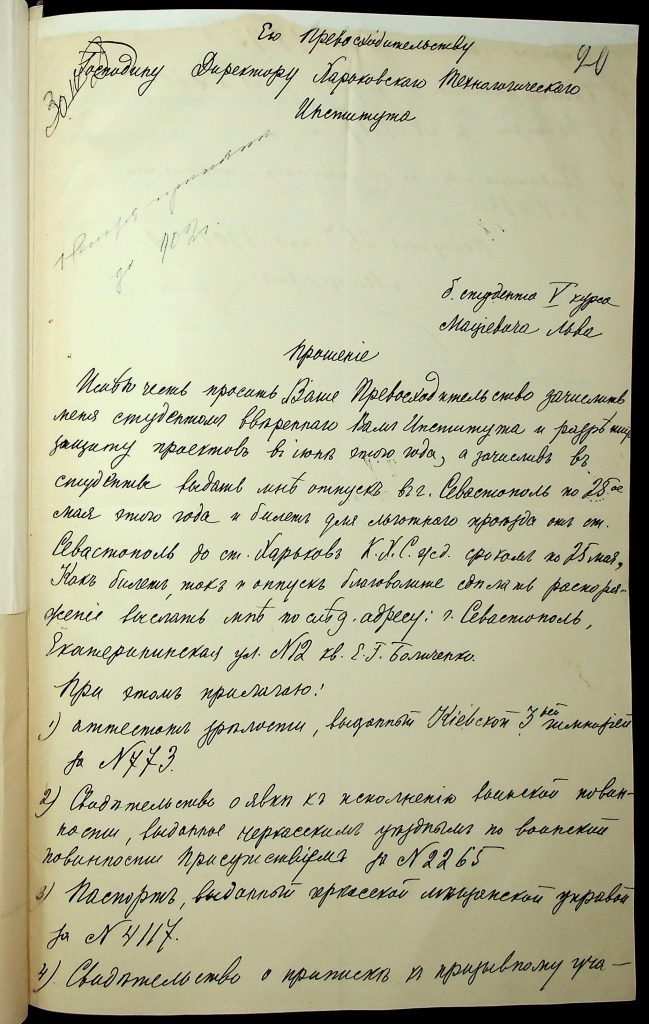 Его Превосходительству
20
Господину Директору Харьковскаго Технологическаго
Института
до 1903 г.
б. студента V курса
Мацiевича Льва
Прошенiе
Имѣю честь просить Ваше Превосходительство зачислить
меня студентомъ ввѣреннаго Вамъ Института и разрѣшить
защиту проектовъ въ iюнѣ этого года, а зачисливъ въ
студенты выдать мнѣ отпускъ въ г. Севастополь по 25ое
мая этого года и билетъ для льготнаго проѣзда отъ ст.
Севастополь до ст. Харьковъ К.Х.С. ж.д. срокомъ по 25 мая,
Какъ билетъ, такъ и отпускъ благоволите сдѣлать распоря-
женiе выслать мнѣ по слѣд. адресу: г. Севастополь,
Екатерининская ул. №12 кв. Е.Г.
При этомъ прилагаю:
1) аттестатъ зрѣлости, выданный Кiевской 3ей гимназiей
за №773.
2) Свидѣтельство о явкѣ къ исполненiю воинской повин-
ности, выданное черкасскимъ уѣзднымъ по воинской
повинности Присутствiемъ за №2265
3) Паспортъ, выданный черкасской мѣщанской управой
за №4117.
4) Свидѣтельство о припискѣ къ призывному уча-